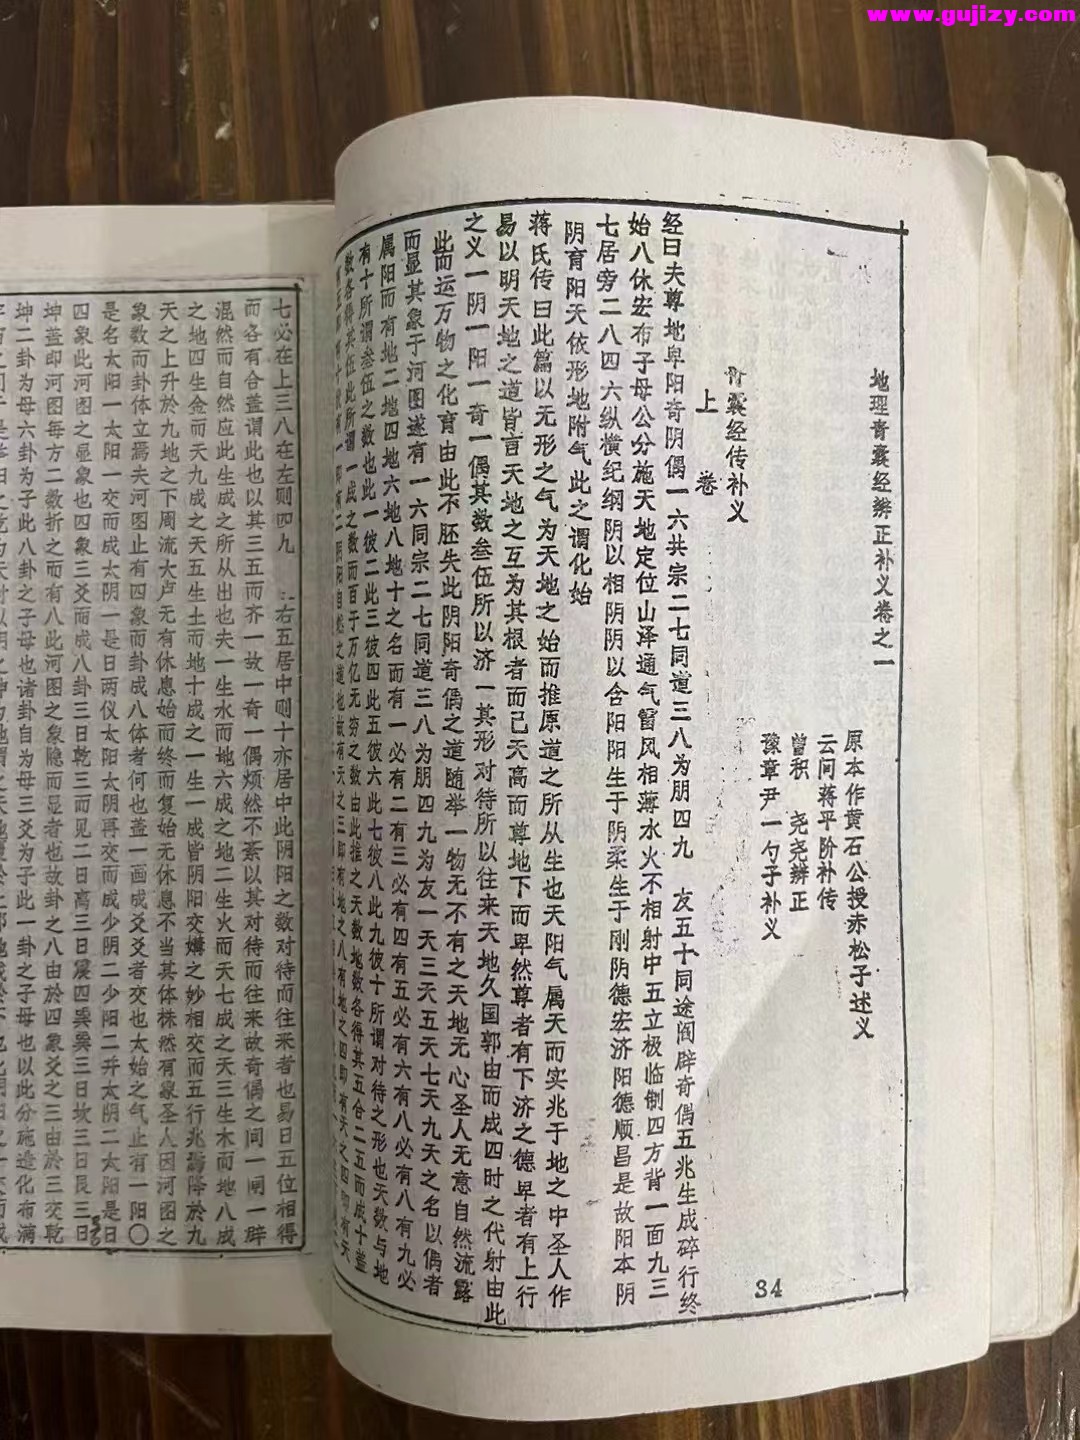 www.gujizy.com
地理青囊经辨正补义卷之一
原本作黄石公授赤松子述义
云间蒋平阶补传
曾积 尧尧辨正
豫章尹一勺子补义
囊经传补义
上 卷
经曰夫尊地卑阳奇阴偶一六共宗二七同道三八为朋四九 友五十同途阖辟奇偶五兆生成碎行终
始八休宏布子母公分施天地定位山泽通气雷风相薄水火不相射中五立极临制四方背一面九三
七居旁二八四六纵横纪纲阴以相阴阴以含阳阳生于阴柔生于刚阴德宏济阳德顺昌是故阳本阴
阴育阳天依形地附气此之谓化始
蒋氏传曰此篇以无形之气为天地之始而推原道之所从生也天阳气属天而实兆于地之中圣人作
易以明天地之道皆言天地之互为其根者而已天高而尊地下而卑然尊者有下济之德卑者有上行
之义一阴一阳一奇一偶其数叁伍所以济一其形对待所以往来天地久国郭由而成四时之代射由此
此而运万物之化育由此不胚失此阴阳奇偶之道随举一物无不有之天地无心圣人无意自然流露
而显其象于河图遂有一六同宗二七同道三八为朋四九为友一天三天五天七天九天之名以偶者
属阳而有地二地四地六地八地十之名而有一必有二有三必有四有五必有六有八必有八有九必
有十所谓叁伍之数也此一彼二此三彼四此五彼六此七彼八此九彼十所谓对待之形也天数与地
数各得其伍此所谓一成之数而百于万亿无穷之数由此推之天数地数各得其五合二五而成十盖
七必在上三八在左则四九 右五居中则十亦居中此阴阳之数对待而往来者也易曰五位相得
而各有合盖谓此也以其三五而齐一故一奇一偶烦然不紊以其对待而往来故奇偶之间一闸一辟
混然而自然应此生成之所从出也夫一生水而地六成之地二生火而天七成之天三生木而地八成
之地四生金而天九成之天五生土而地十成之一生一成皆阴阳交媾之妙相交而五行兆焉降於九
天之上升於九地之下周流大卢无有休息始而终而复始无休息不当其体株然有象圣人因河图之
象数而卦体立焉夫河图止有四象而卦成八体者何也盖一画成爻爻者交也太始之气止有一阳〇
是名太阳一太阳一交而成太阴一是曰两仪太阳太阴再交而成少阴二少阳二并太阴二太阳是曰
四象此河图之显象也四象三爻而成八卦三日乾三而见二日离三日震四巽巽三日坎三日艮三曰
坤盖即河图每方二数折之而有八此河图之象隐而显者也故卦之八由於四象爻之三由於三交乾
坤二卦为母六卦为子此八卦之子母也诸卦自为母三爻为子此一卦之子母也以此分施造化布满
34